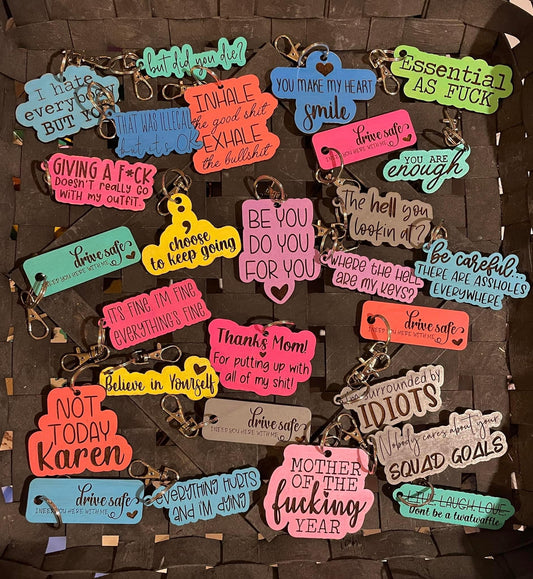 but did you die?
I hate
everybody
BUT YO
THAT WAS ILLEGAL
but it's OK
INHALE
the good shit
EXHALE
the bullshit
YOU MAKE MY HEART
smile
Essential
AS FUCK
drive safe
I NEED YOU HERE WITH ME
YOU ARE
enough
GIVING A F*CK
DOESN'T REALLY GO
WITH MY OUTFIT.
choose
to keep going
BE YOU
DO YOU
FOR YOU
The hell you
lookin at?
drive safe
I NEED YOU HERE WITH ME
WHERE THE HELL
ARE MY KEYS?
be careful...
THERE ARE ASSHOLES
EVERYWHERE
IT'S FINE. I'M FINE
EVERYTHING'S FINE
drive safe
I NEED YOU HERE WITH ME
Thanks Mom!
For putting up with
all of my shit!
Believe in Yourself
SURROUNDED BY
IDIOTS
NOT
TODAY
Karen
drive safe
I NEED YOU HERE WITH ME
Nobody cares about your
SQUAD GOALS
MOTHER
OF THE
fucking
YEAR
drive safe
I NEED YOU HERE WITH ME
EVERYTHING HURTS
AND I'M DYING
LIVE, LAUGH, LOVE
Don't be a twatwaffle